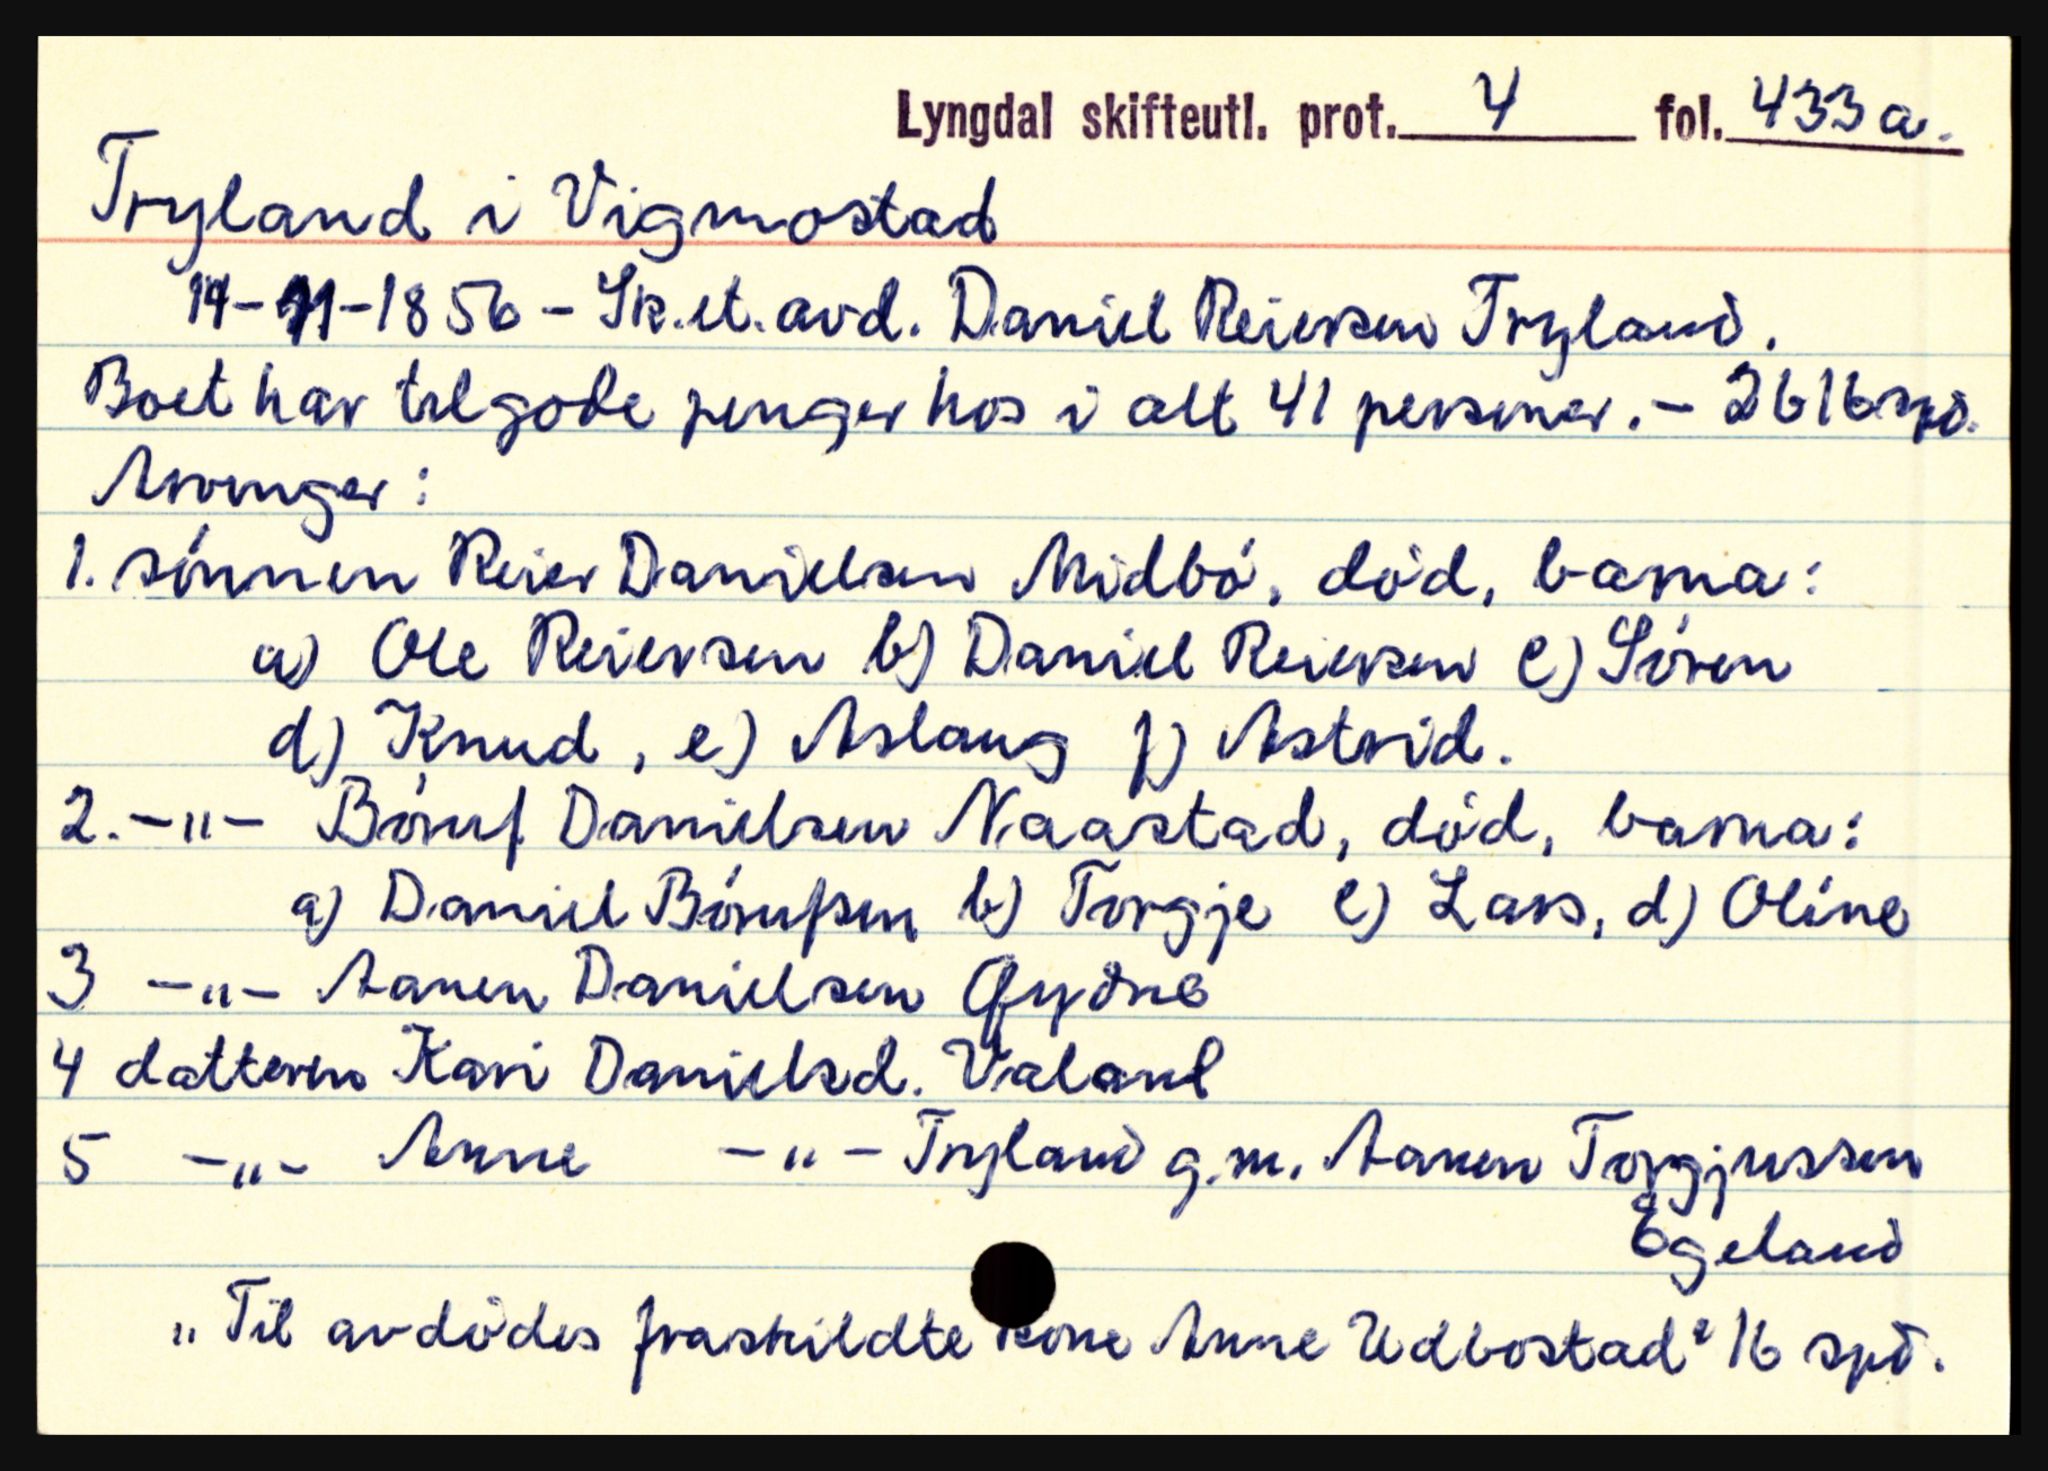 Lyngdal skifteutl. prot. 4 fol. 433a.
Tryland i Vigmostad
14-11-1856 - Sk.et.avd. Daniel Reiersen Tryland.
Boet har tilgode penger hos i alt 41 personer. - 2616 spd.
Arvinger:
1. sønnen Reier Danielsen Midbø, død, barna:
a) Ole Reiersen b) Daniel Reiersen c) Søren
d) Knud, e) Aslaug f) Astrid.
2. -"- Børuf Danielsen Naastad, død, barna:
a) Daniel Børufsen b) Torgje c) Lars, d) Oline
3 -"- Aanen Danielsen Gydne
4 datteren Kari Danielsd. Valand
5 -"- Anne -"- Tryland g.m. Aanen Torgjussen
Egeland
"Til avdødes fraskildte kone Anne Udbostad" 16 spd.